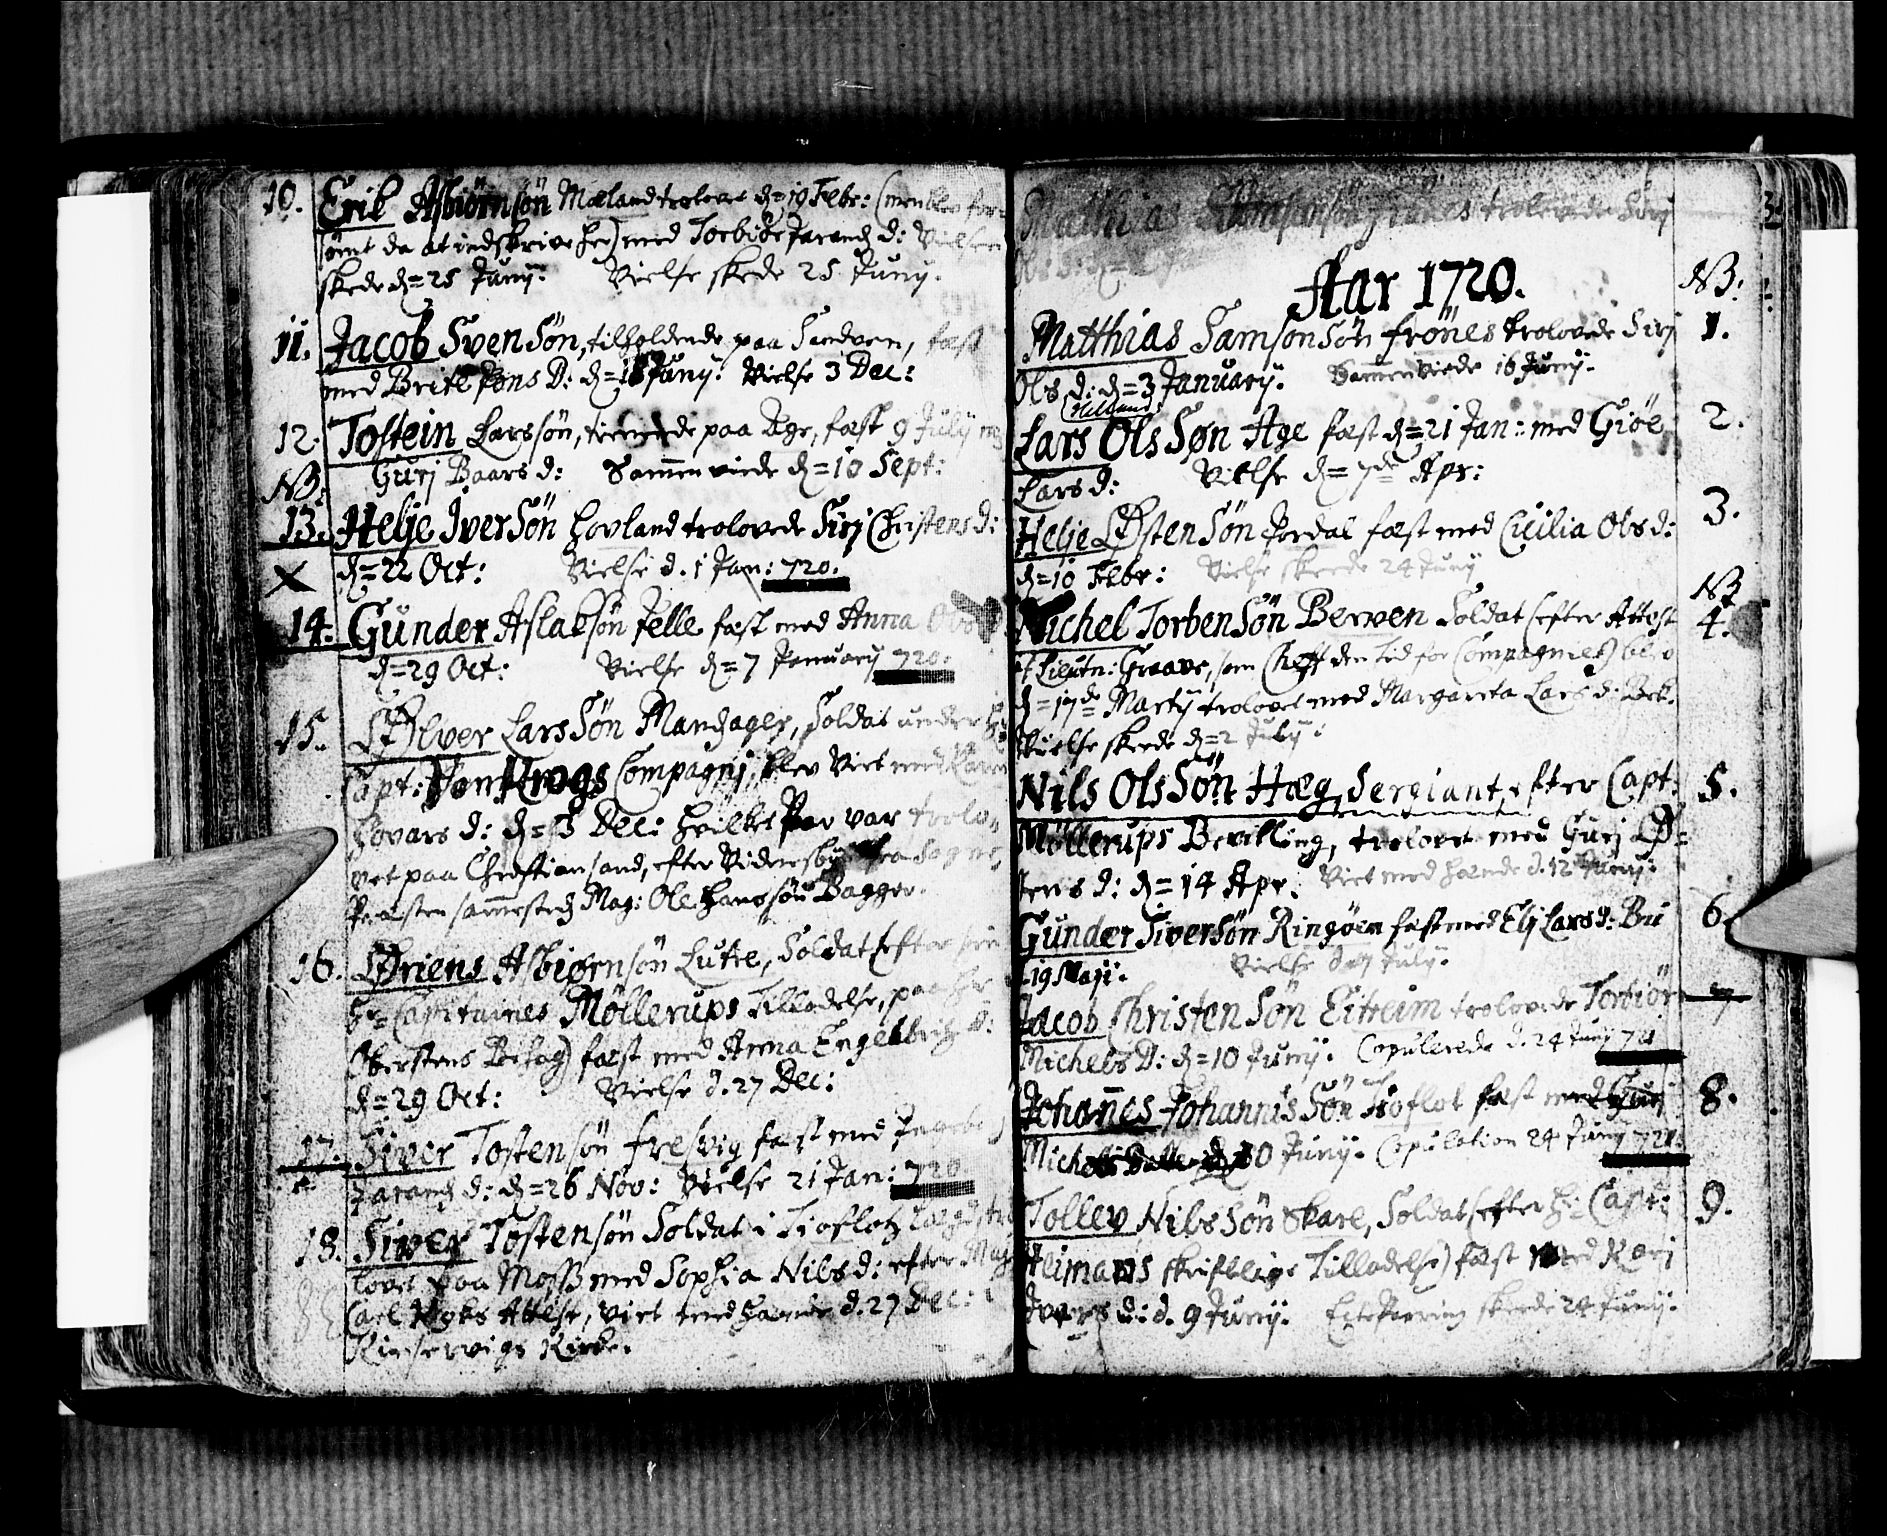 10. Erik Asbiørnsön Mæland trolovet d=19 Febr: (men blev for-
sömt da at indskrive her) med Torbiør Jarand d: Vielsen
skede d=25 Junij. Vielse skede 25 Junij.
11. Jacob Svensön, tilholdende paa Sandven, fæst
med Brite Jons D: d=18 Junij. Vielse 3 Dec:
12. Tostein Larssön, tienende paa Age, fæst 9 Julij
NB. Gurj Baars d: Sammenviede d=10 Sept:
13. Helje Iversön Hovland trolovede Sirj Christens d:
d=22 Oct: Vielse d. 1 Jan: 720.
14. Gunder Aslaksön Jelle fæst med Anna Ols
d=29 Oct: Vielse d=7 Januarij 720.
15. Ølver Larssön Mandager, Soldat under
Capt: Von Krogs Compagnj, blev Viet med Kari
Hovars d: d=3 Dec: hvilket Par var trolo-
vet paa Christiansand, efter Vidnesbyrd fra Sogne
Præsten sammesteds Mag: Ole Hanssøn Bagger.
16. Øriens Asbiørnsön Lutre, Soldat (efter
hr Capitaines Möllerups Tilladelse, paa hr
Oberstens) fæst med Anna Engelbrigt d:
d=29 Oct: Vielse d. 27 Dec:
17. Siver Tostensön Fresvig fæst med Ingeborg
Jarand d: d=26 Nov: Vielse 21 Jan: 720
18. Siver Tostensön Soldat i Tioflotz Lægd, tro
lovet paa Moss med Sophia Nils d: efter Mag
Carl Attest, viet med haande d. 27 Dec: i
Kinservigs Kirke.
Matthias Samsonsön Frönes trolovede Sirj
Ols d: d=3
Aar 1720. NB:
Matthias Samsonsön Frönes trolovede Sirj 1.
Ols d: d=3 Januarij. Sammenviede 16 Junij.
Lars Olssøn Age fæst d=21 Jan: med Giøe 2.
Lars d: Vielse d=7de Apr:
Helje Østensön Jordal fæst med Cicilia Ols d: 3.
d=10 Febr: Vielse skeede 24 Junij
NB
Michel Torbensön Berven Soldat (efter Attest 4.
af Lieutn: Graave, som Cheff den tid for Compagniet) blev
d=17de Martij trolovet med Margareta Lars d: Bek.
Vielse skeede d=2 Julij.
Nils Olssön Hæg, Sergiant, efter Capt: 5.
Möllerups Bevilling, trolovet med Gurj Ø-
stens d: d=14 Apr. Viet med haande d. 12 Junij.
Gunder Siversön Ringøen fæst med Elj Lars d: Bu 6.
d 19 Maji. Vielse d 7 Julij.
Jacob Christensön Eitreim trolovede Torbiör 7
Michels D: d=10 Junij. Copulerede d. 24 Junij 721
Johannes Johannissön Tioflot fæst med Gurj 8.
Michels Datter d 10 Junij. Copulation 24 Junij 721.
Tollev Nilssön Skare, Soldat (efter H: Capt: 9.
Heimans skriftlige Tilladelse) fæst med Kari
Ivers d: d. 9 Junij. Ecteparring skeede 24 Junij.